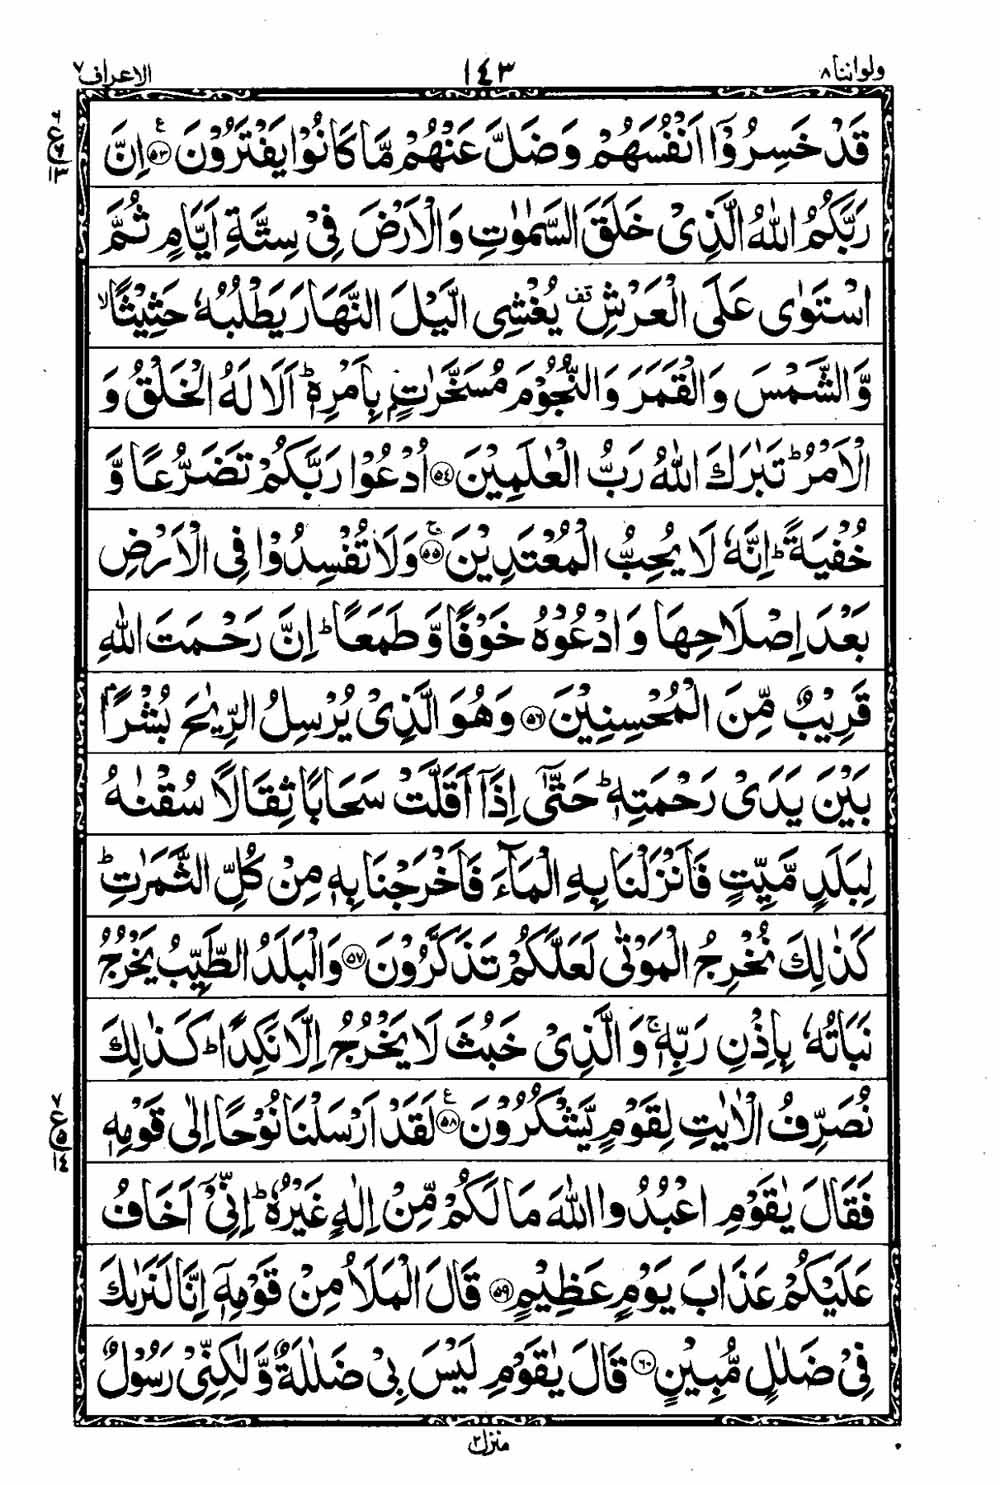 ولواننا ٨
١٤٣
الاعراف ٧
قَدْ خَسِرُوْۤا اَنْفُسَهُمْ وَضَلَّ عَنْهُمْ مَّا كَانُوْا يَفْتَرُوْنَ ﴿٥٣﴾ ع اِنَّ
رَبَّكُمُ اللّٰهُ الَّذِیْ خَلَقَ السَّمٰوٰتِ وَالْاَرْضَ فِیْ سِتَّةِ اَیَّامٍ ثُمَّ
اسْتَوٰی عَلَی الْعَرْشِ قف یُغْشِی الَّیْلَ النَّهَارَ یَطْلُبُهٗ حَثِیْثًا ۙ
وَّالشَّمْسَ وَالْقَمَرَ وَالنُّجُوْمَ مُسَخَّرٰتٍۭ بِاَمْرِهٖ ؕ اَلَا لَهُ الْخَلْقُ وَ
الْاَمْرُ ؕ تَبٰرَكَ اللّٰهُ رَبُّ الْعٰلَمِیْنَ ﴿٥٤﴾ اُدْعُوْا رَبَّكُمْ تَضَرُّعًا وَّ
خُفْیَةً ؕ اِنَّهٗ لَا یُحِبُّ الْمُعْتَدِیْنَ ﴿٥٥﴾ ۚ وَلَا تُفْسِدُوْا فِی الْاَرْضِ
بَعْدَ اِصْلَاحِهَا وَادْعُوْهُ خَوْفًا وَّطَمَعًا ؕ اِنَّ رَحْمَتَ اللّٰهِ
قَرِیْبٌ مِّنَ الْمُحْسِنِیْنَ ﴿٥٦﴾ وَهُوَ الَّذِیْ یُرْسِلُ الرِّیٰحَ بُشْرًۢا
بَیْنَ یَدَیْ رَحْمَتِهٖ ؕ حَتّٰۤی اِذَاۤ اَقَلَّتْ سَحَابًا ثِقَالًا سُقْنٰهُ
لِبَلَدٍ مَّیِّتٍ فَاَنْزَلْنَا بِهِ الْمَآءَ فَاَخْرَجْنَا بِهٖ مِنْ كُلِّ الثَّمَرٰتِ ؕ
كَذٰلِكَ نُخْرِجُ الْمَوْتٰی لَعَلَّكُمْ تَذَكَّرُوْنَ ﴿٥٧﴾ وَالْبَلَدُ الطَّیِّبُ یَخْرُجُ
نَبَاتُهٗ بِاِذْنِ رَبِّهٖ ۚ وَالَّذِیْ خَبُثَ لَا یَخْرُجُ اِلَّا نَكِدًا ؕ كَذٰلِكَ
نُصَرِّفُ الْاٰیٰتِ لِقَوْمٍ یَّشْكُرُوْنَ ﴿٥٨﴾ ع لَقَدْ اَرْسَلْنَا نُوْحًا اِلٰی قَوْمِهٖ
فَقَالَ یٰقَوْمِ اعْبُدُوا اللّٰهَ مَا لَكُمْ مِّنْ اِلٰهٍ غَیْرُهٗ ؕ اِنِّیْۤ اَخَافُ
عَلَیْكُمْ عَذَابَ یَوْمٍ عَظِیْمٍ ﴿٥٩﴾ قَالَ الْمَلَاُ مِنْ قَوْمِهٖۤ اِنَّا لَنَرٰىكَ
فِیْ ضَلٰلٍ مُّبِیْنٍ ﴿٦٠﴾ قَالَ یٰقَوْمِ لَیْسَ بِیْ ضَلٰلَةٌ وَّلٰكِنِّیْ رَسُوْلٌ
منزل ٢